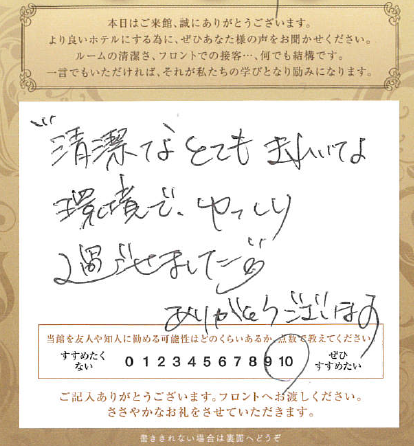 本日はご来館、誠にありがとうございます。
より良いホテルにする為に、ぜひあなた様の声をお聞かせください。
ルームの清潔さ、フロントでの接客…、何でも結構です。
一言でもいただければ、それが私たちの学びとなり励みになります。
清潔でとても
環境で、ゆっくり
過ごせました
ありがとうございます
当館を友人や知人に勧める可能性はどのくらいあるか、点数で教えてください
すすめたくない 0 1 2 3 4 5 6 7 8 9 10 ぜひすすめたい
ご記入ありがとうございます。フロントへお渡しください。
ささやかなお礼をさせていただきます。
書ききれない場合は裏面へどうぞ